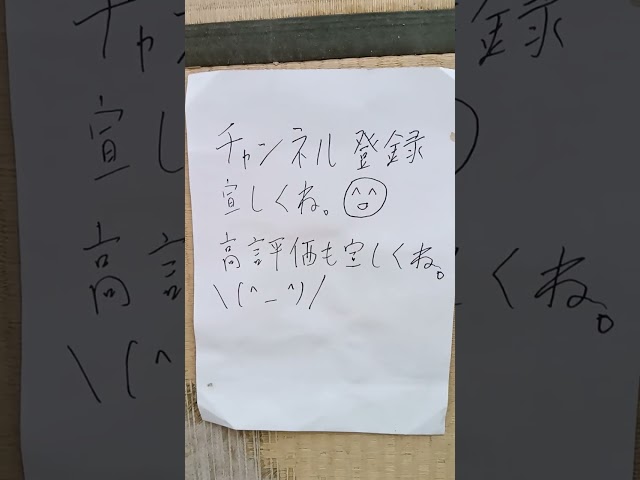 チャンネル登録
宜しくね。
高評価も宜しくね。
\(^_^)/